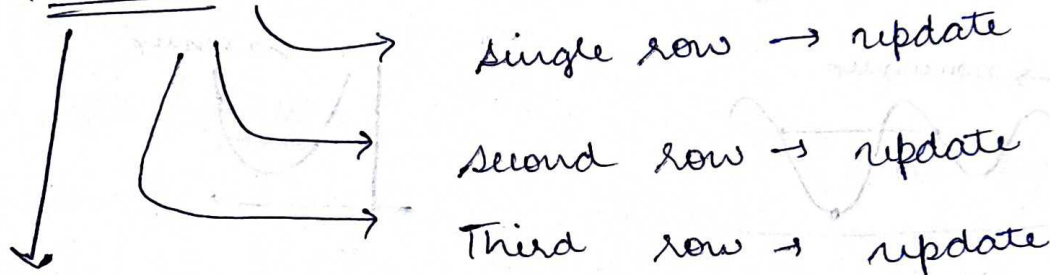 single row → update
second row → update
Third row → update